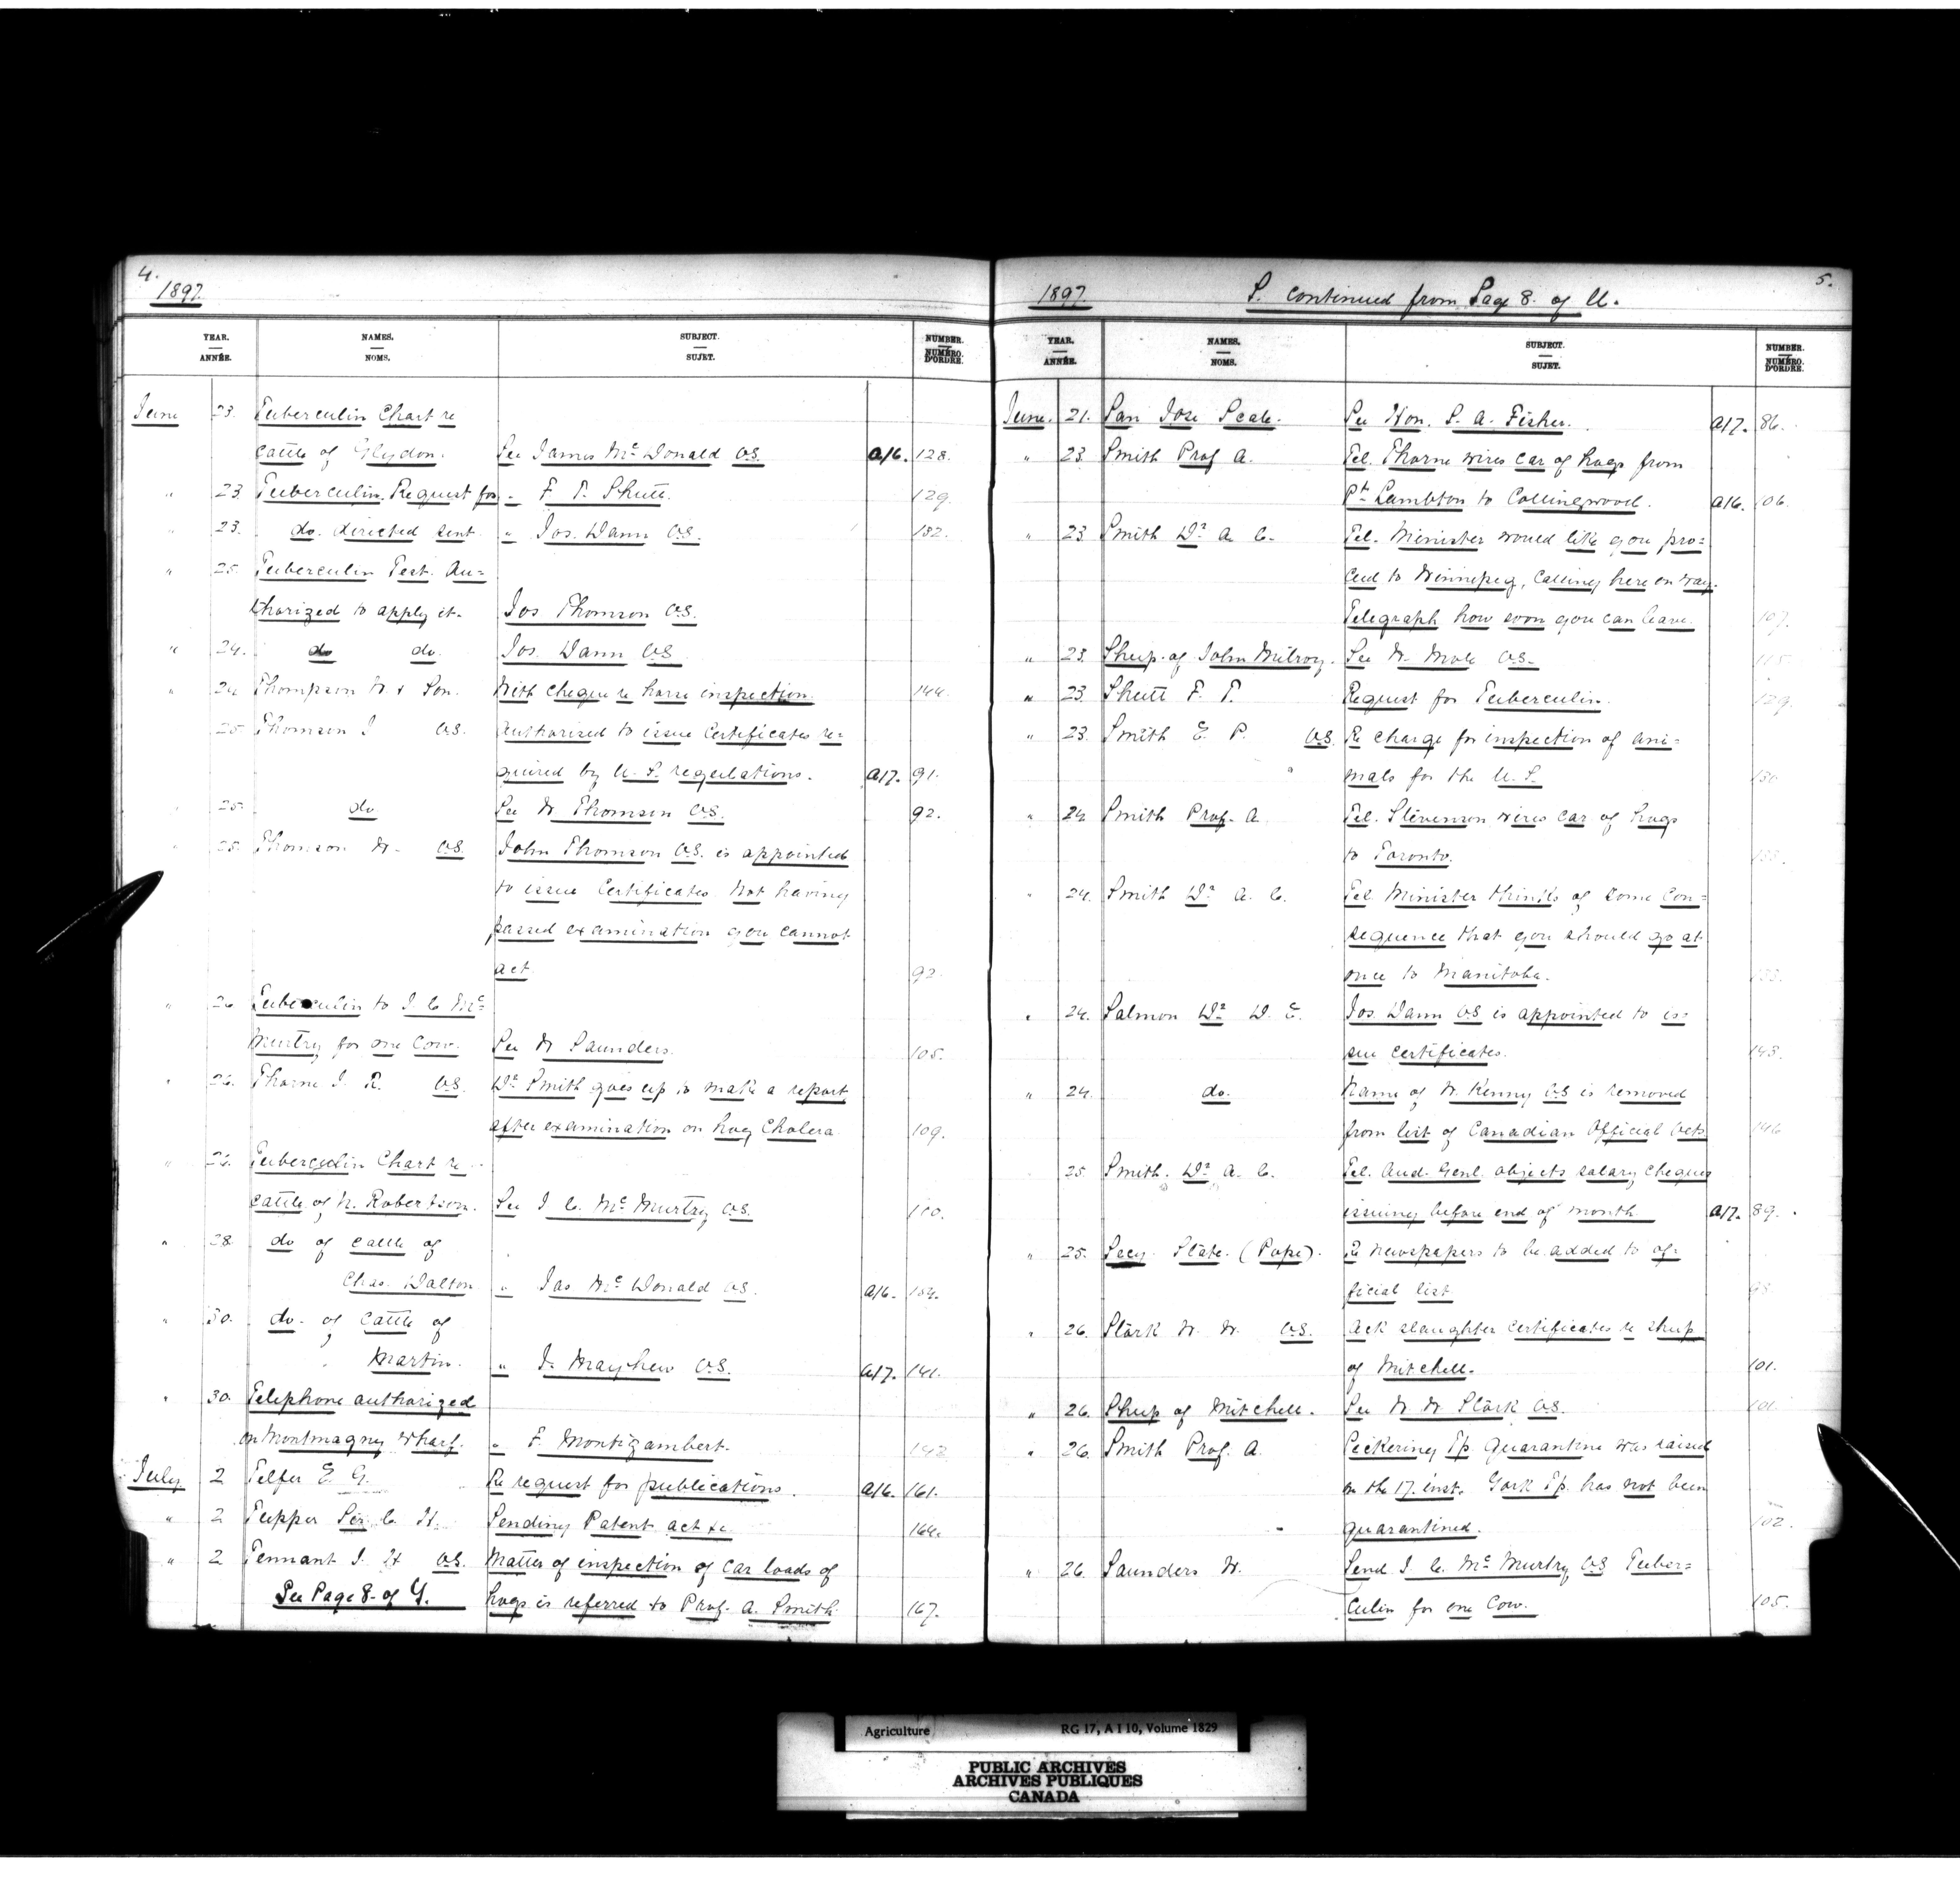 4.
1897.
YEAR. ANNÉE. NAMES. NOMS. SUBJECT. SUJET. NUMBER. NUMÉRO. D'ORDRE.
June 23. Tuberculin Chart re
cattle of Glydon. See James McDonald V.S. a/6. 128.
" 23 Tuberculin. Request for " F. T. Shutt. 129.
" 23. do. directed sent " Jos. Dann V.S. 132.
" 25. Tuberculin Test. Au=
thorized to apply it. Jos Thomson V.S.
" 24. do do. Jos. Dann V.S.
" 24 Thompson W & Son. With cheque re horse inspection. 144.
25. Thomson J V.S. authorized to issue Certificates re=
quired by U.S. regulations. a/7. 91.
" 25. do See W Thomson V.S. 92.
" 25. Thomson W. V.S. John Thomson V.S. is appointed
to issue Certificates. Not having
passed examination you cannot
act. 92.
" 26 Tuberculin to J C Mc
Murtry for one Cow. See W Saunders. 105.
" 26. Thorne J. R. V.S. Dr Smith goes up to make a report
after examination on hog Cholera 109.
" 26. Tuberculin Chart re
cattle of N. Robertson. See J C. McMurtry V.S. 110.
" 28. do of cattle of
Chas. Dalton " Jas McDonald V.S. a/6. 134.
" 30. do. of Cattle of
Martin. " J. Mayhew V.S. a/7. 141.
" 30. Telephone authorized
on Montmagny Wharf. " F. Montizambert. 142
July 2 Telfer E. G. Re request for publications. a/6. 161.
" 2 Tupper Sir C. H. Sending Patent act &c. 164.
" 2 Tennant J. H V.S. Matter of inspection of car loads of
See Page 8. of Y. hogs is referred to Prof. A. Smith 167.
5.
1897. S. continued from Page 8. of U.
YEAR. ANNÉE. NAMES. NOMS. SUBJECT. SUJET. NUMBER. NUMÉRO. D'ORDRE.
June. 21. San Jose Scale. See Hon. S. A. Fisher. a/7. 86.
" 23 Smith Prof A. Tel. Thorne wires car of hogs from
Pt Lambton to Collingwood. a/6. 106.
" 23 Smith Dr A C. Tel. Minister would like you pro=
ceed to Winnipeg, calling here on way.
Telegraph how soon you can leave. 107.
" 23. Sheep of John Milroy. See W. Mole V.S. 115.
" 23 Shutt F. T. Request for Tuberculin. 129.
" 23. Smith E. P. V.S. Re charge for inspection of ani=
mals for the U.S.
" 24 Smith Prof. A. Tel. Stevenson wires car of hogs
to Toronto.
" 24. Smith Dr A. C. Tel. Minister thinks of some con=
sequence that you should go at
once to Manitoba.
" 24. Salmon Dr D. E. Jos. Dann V.S is appointed to is=
sue certificates. 143.
" 24. do. Name of W. Kenny V.S is removed
from list of Canadian Official Vets 146
25. Smith. Dr A. C. Tel. Aud. Genl. objects salary cheques
issuing before end of month a/7. 89.
" 25. Secy. State. (Pope). Re newspapers to be added to of=
ficial list 98.
" 26. Stork W. W. V.S. Ack slaughter certificates re sheep
of Mitchell. 101.
" 26. Sheep of Mitchell. See W W Stork V.S. 101.
" 26. Smith Prof. A. Pickering Tp. quarantine was raised
on the 17. inst. York Tp. has not been
quarantined. 102.
" 26. Saunders W. Send J. C. McMurtry V.S Tuber=
culin for one Cow. 105.
Agriculture RG 17, A I 10, Volume 1829
PUBLIC ARCHIVES
ARCHIVES PUBLIQUES
CANADA